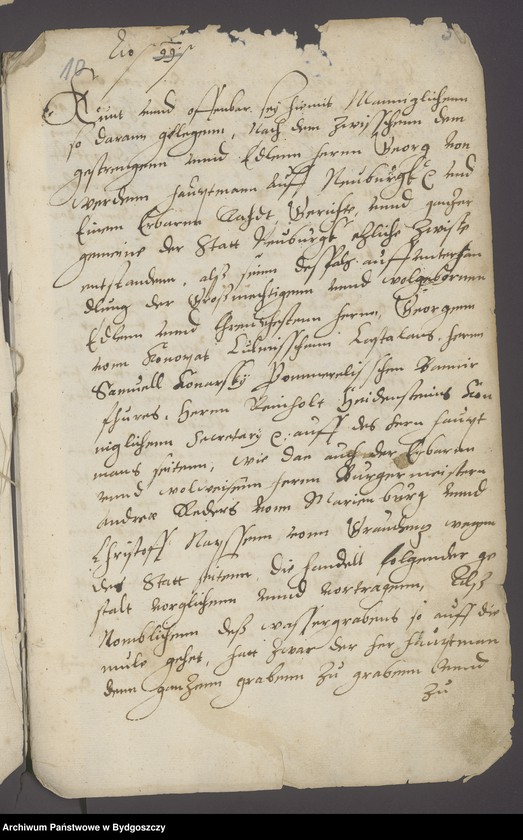 No 99
12
Kunt unnd offenbar sey hiemit Menniglichenn
so daram gelegenn, Nach dem Zwisschenn dem
gestrengenn unnd Edlenn Hernn Georg von
werdenn Hauptmann auff Neuburgk &c unnd
Einem Erbarnn Rahdt, Gerichte, unnd gantzer
gemeine der Statt Neuburgk etzliche Zwiste
entstandenn, als seinn desfals auff unterhan
dlung der Grosmechtigenn unnd wolgebornenn
Edlenn unnd Ehrnvhestenn Hernn, Georgenn
vom Konopat Culmisschenn Castalans, Hernn
Samuell Konarsky Pommerelisschen
Hernn Reinholt Heidensteins Kön
niglichenn Secretarÿ &c. auff des Hern Haupt
mans seitenn, wie dan auch der Erbaren
unnd wolweisenn Herrn Burgermeistern
Andrea vonn Marienburg unnd
Christoff vonn Graudentz wegen
der Statt seitenn, die handell folgender ge
stalt verglichenn unnd vertragenn, Als
Nemblichenn deß wassergrabens so auff die
mule gehet, hatt zwar der Her Hauptman
denn gantzenn grabenn zu grabenn unnd
zu
Archiwum Państwowe w Bydgoszczy